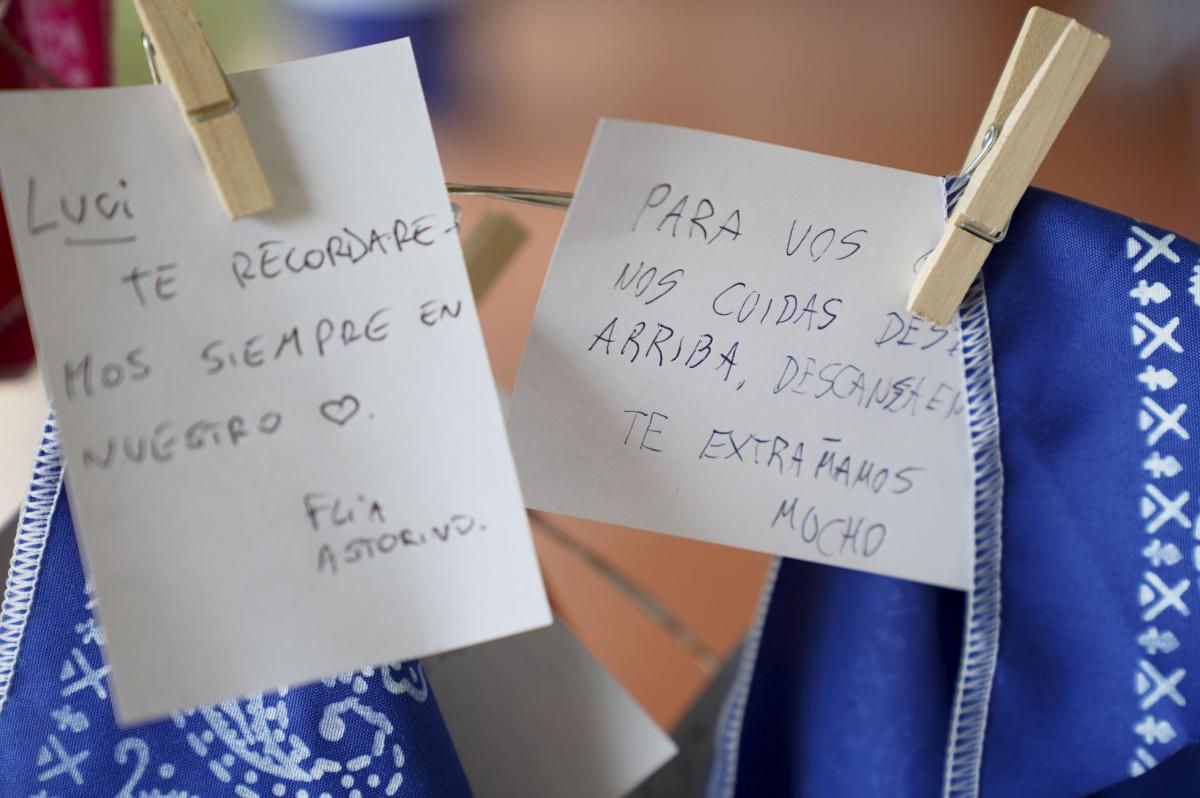 Luci
TE RECORDARE-
MOS SIEMPRE EN
NUESTRO ♡.
FLIA
ASTORINO.
PARA VOS
NOS CUIDAS
ARRIBA, DESCANSA EN
TE EXTRAÑAMOS
MUCHO